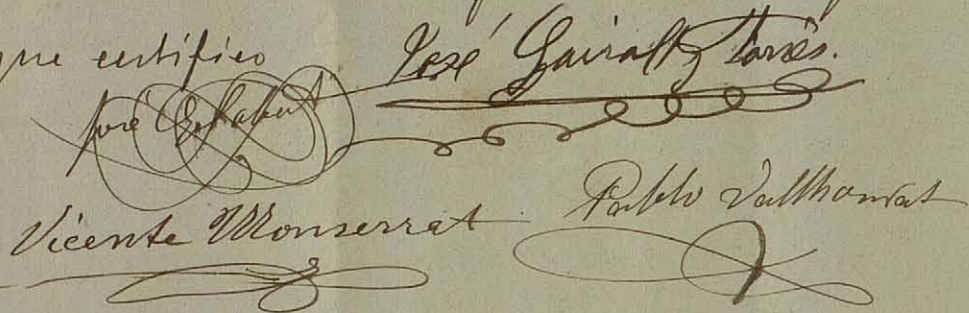 que certifico
José Giralt y Torres.
José
Vicente Monserrat
Pablo Vallhonrat